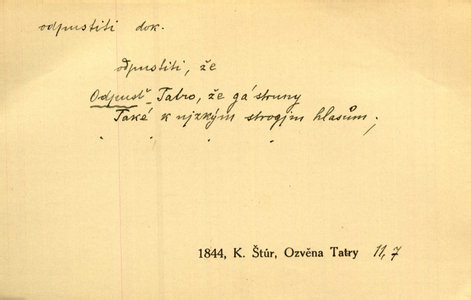 odpustiti dok.
odpustiti, že
Odpusť Tatro, že gá struny
Také k njzkým strogjm hlasům;
" " " "
1844, K. Štúr, Ozvěna Tatry 11,7